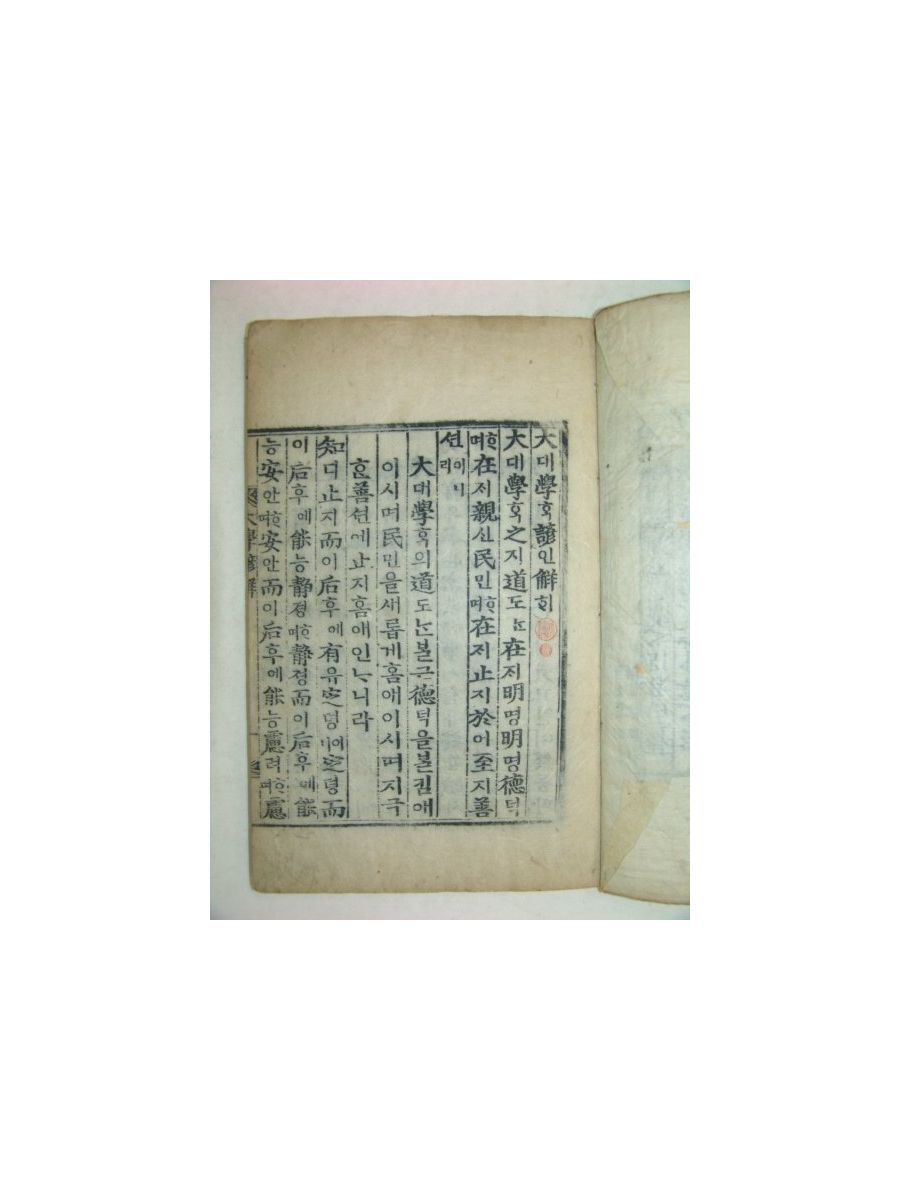 大대學ᄒᆞᆨ諺언解ᄒᆡ
大대學ᄒᆞᆨ之지道도ᄂᆞᆫ在ᄌᆡ明명明명德덕
ᄒᆞ며在ᄌᆡ親신民민ᄒᆞ며在ᄌᆡ止지於어至지善
션이니라
大대學ᄒᆞᆨ의道도ᄂᆞᆫᄇᆞᆯᄀᆞᆫ德덕을ᄇᆞᆯ킴애
이시며民민을새롭게홈애이시며지극
ᄒᆞᆫ善션에止지홈애인ᄂᆞ니라
知디止지而이后후에有유定뎡이니定뎡而
이后후에能능靜졍ᄒᆞ며靜졍而이后후에能
능安안ᄒᆞ며安안而이后후에能능慮려ᄒᆞ며慮
大學諺解